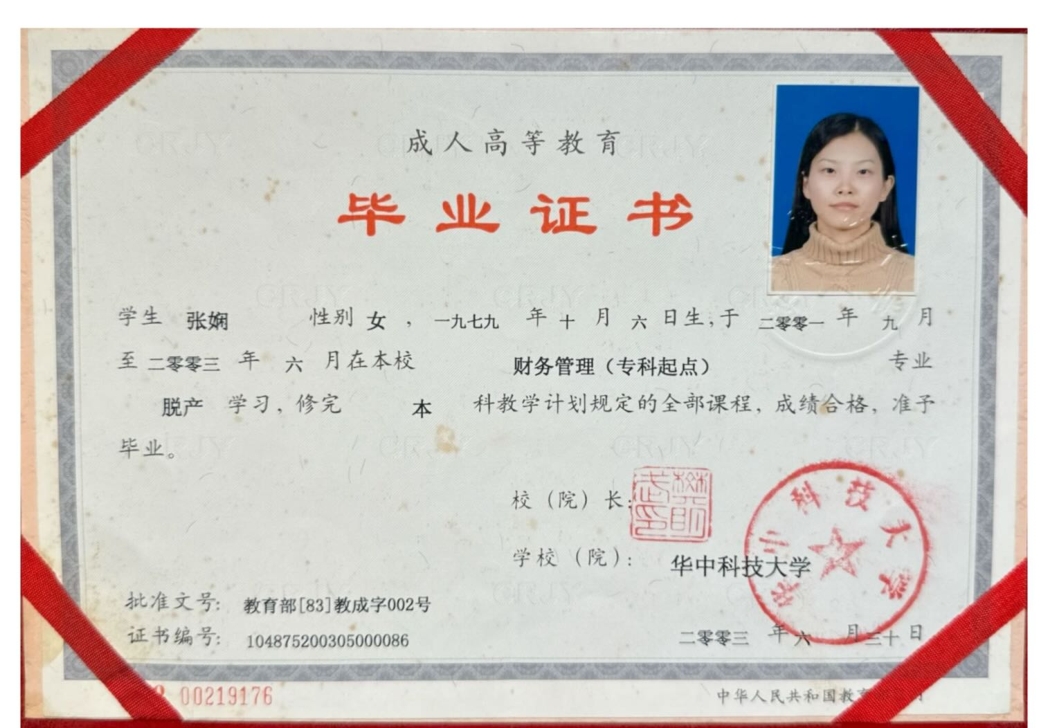 成人高等教育
毕业证书
学生 张娴 性别 女 ， 一九七九 年 十 月 六 日生，于 二零零一 年 九 月
至 二零零三 年 六 月在本校 财务管理（专科起点） 专业
脱产 学习，修完 本 科教学计划规定的全部课程，成绩合格，准予
毕业。
校（院）长：
学校（院）： 华中科技大学
华中科技大学
批准文号： 教育部[83]教成字002号
证书编号： 104875200305000086
二零零三 年 六 月 三十 日
00219176
中华人民共和国教育